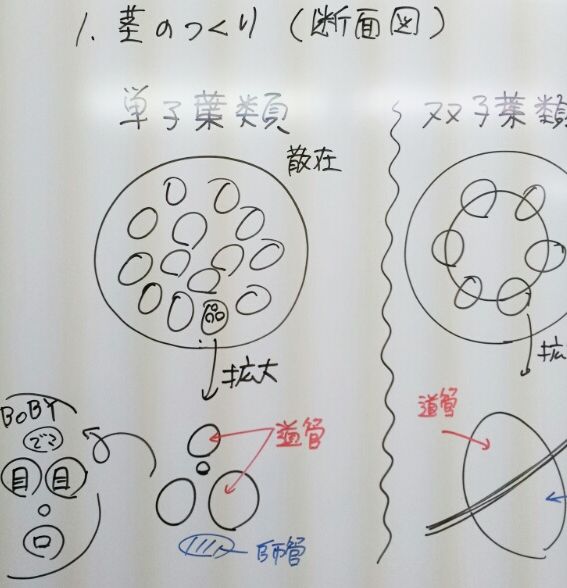 1. 茎のつくり (断面図)
単子葉類
双子葉類
散在
拡大
拡
BOBY
でこ
目 目
口
道管
師管
道管